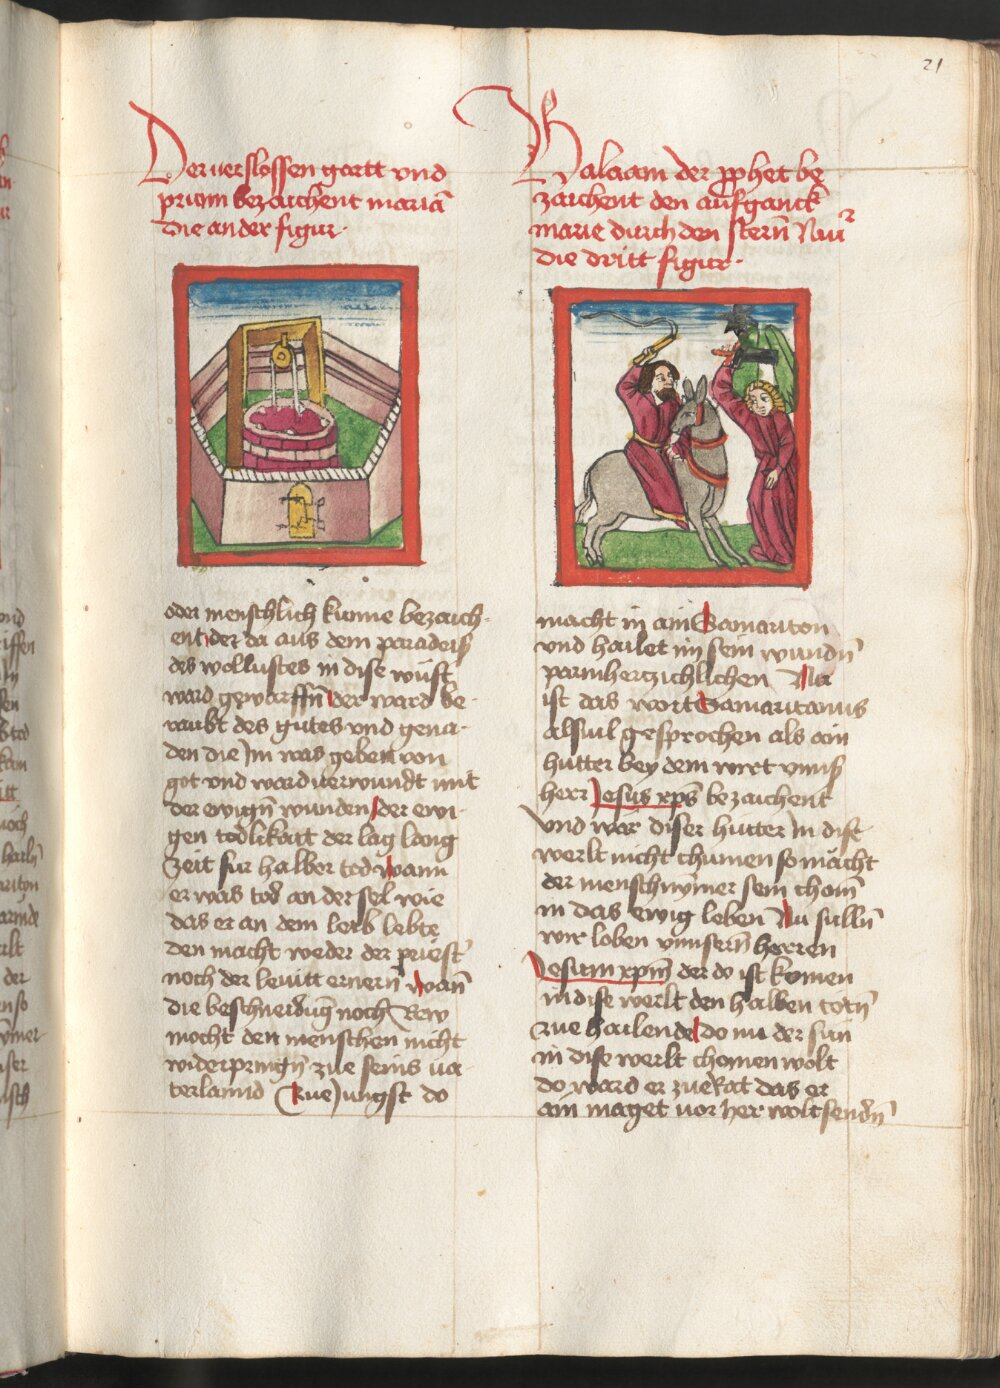 21
Der verslossen gartt vnd
prunn bezaichent mariā
die ander figur·
oder menschlich kunne bezaich-
ent der da aus dem paradeiß
des wollustes in dise wüst
ward geworffn̄ der ward be-
raubt des gutes vnd gena-
den die Im was geben von
got vnd ward verwundt mit
der ewign̄ wunden der ewi-
gen todlikait der lag lang
zeit fur halber tod wann
er was tod an der sel wie
das er an dem leib lebte
den macht weder der priest̾
noch der leuitt ernern̄ wan̄
die beschneidūg noch Rew
mocht den menschen nicht
widerpringn̄ zue seins va-
terlannd Zue Jungst do
Balaam der p̄phet be
zaichent den aufganck
marie durch den stern̄ Nu᷑
die dritt figur·
macht in ain Samariton
vnd hailet im sein wundn̄
parmhertzichlichen Nu
ist das wort Samaritanus
alsuil gesprochen als ain
hutter bey dem wirt vnnß
herr Jesus xp̄s bezaichent
vnd wär diser hutter In dise
werlt nicht chumen so mächt
der mensch nymer sein chom̄
in das ewig leben Nu sulln̄
wir loben vnnsern̄ herren
Jesum xp̄m der do ist komen
in dise werlt den halben totn̄
zue hailende do nu der sun
in dise werlt chomen wolt
do ward er zue Rat das er
ain maget vor her wolt sendn̄